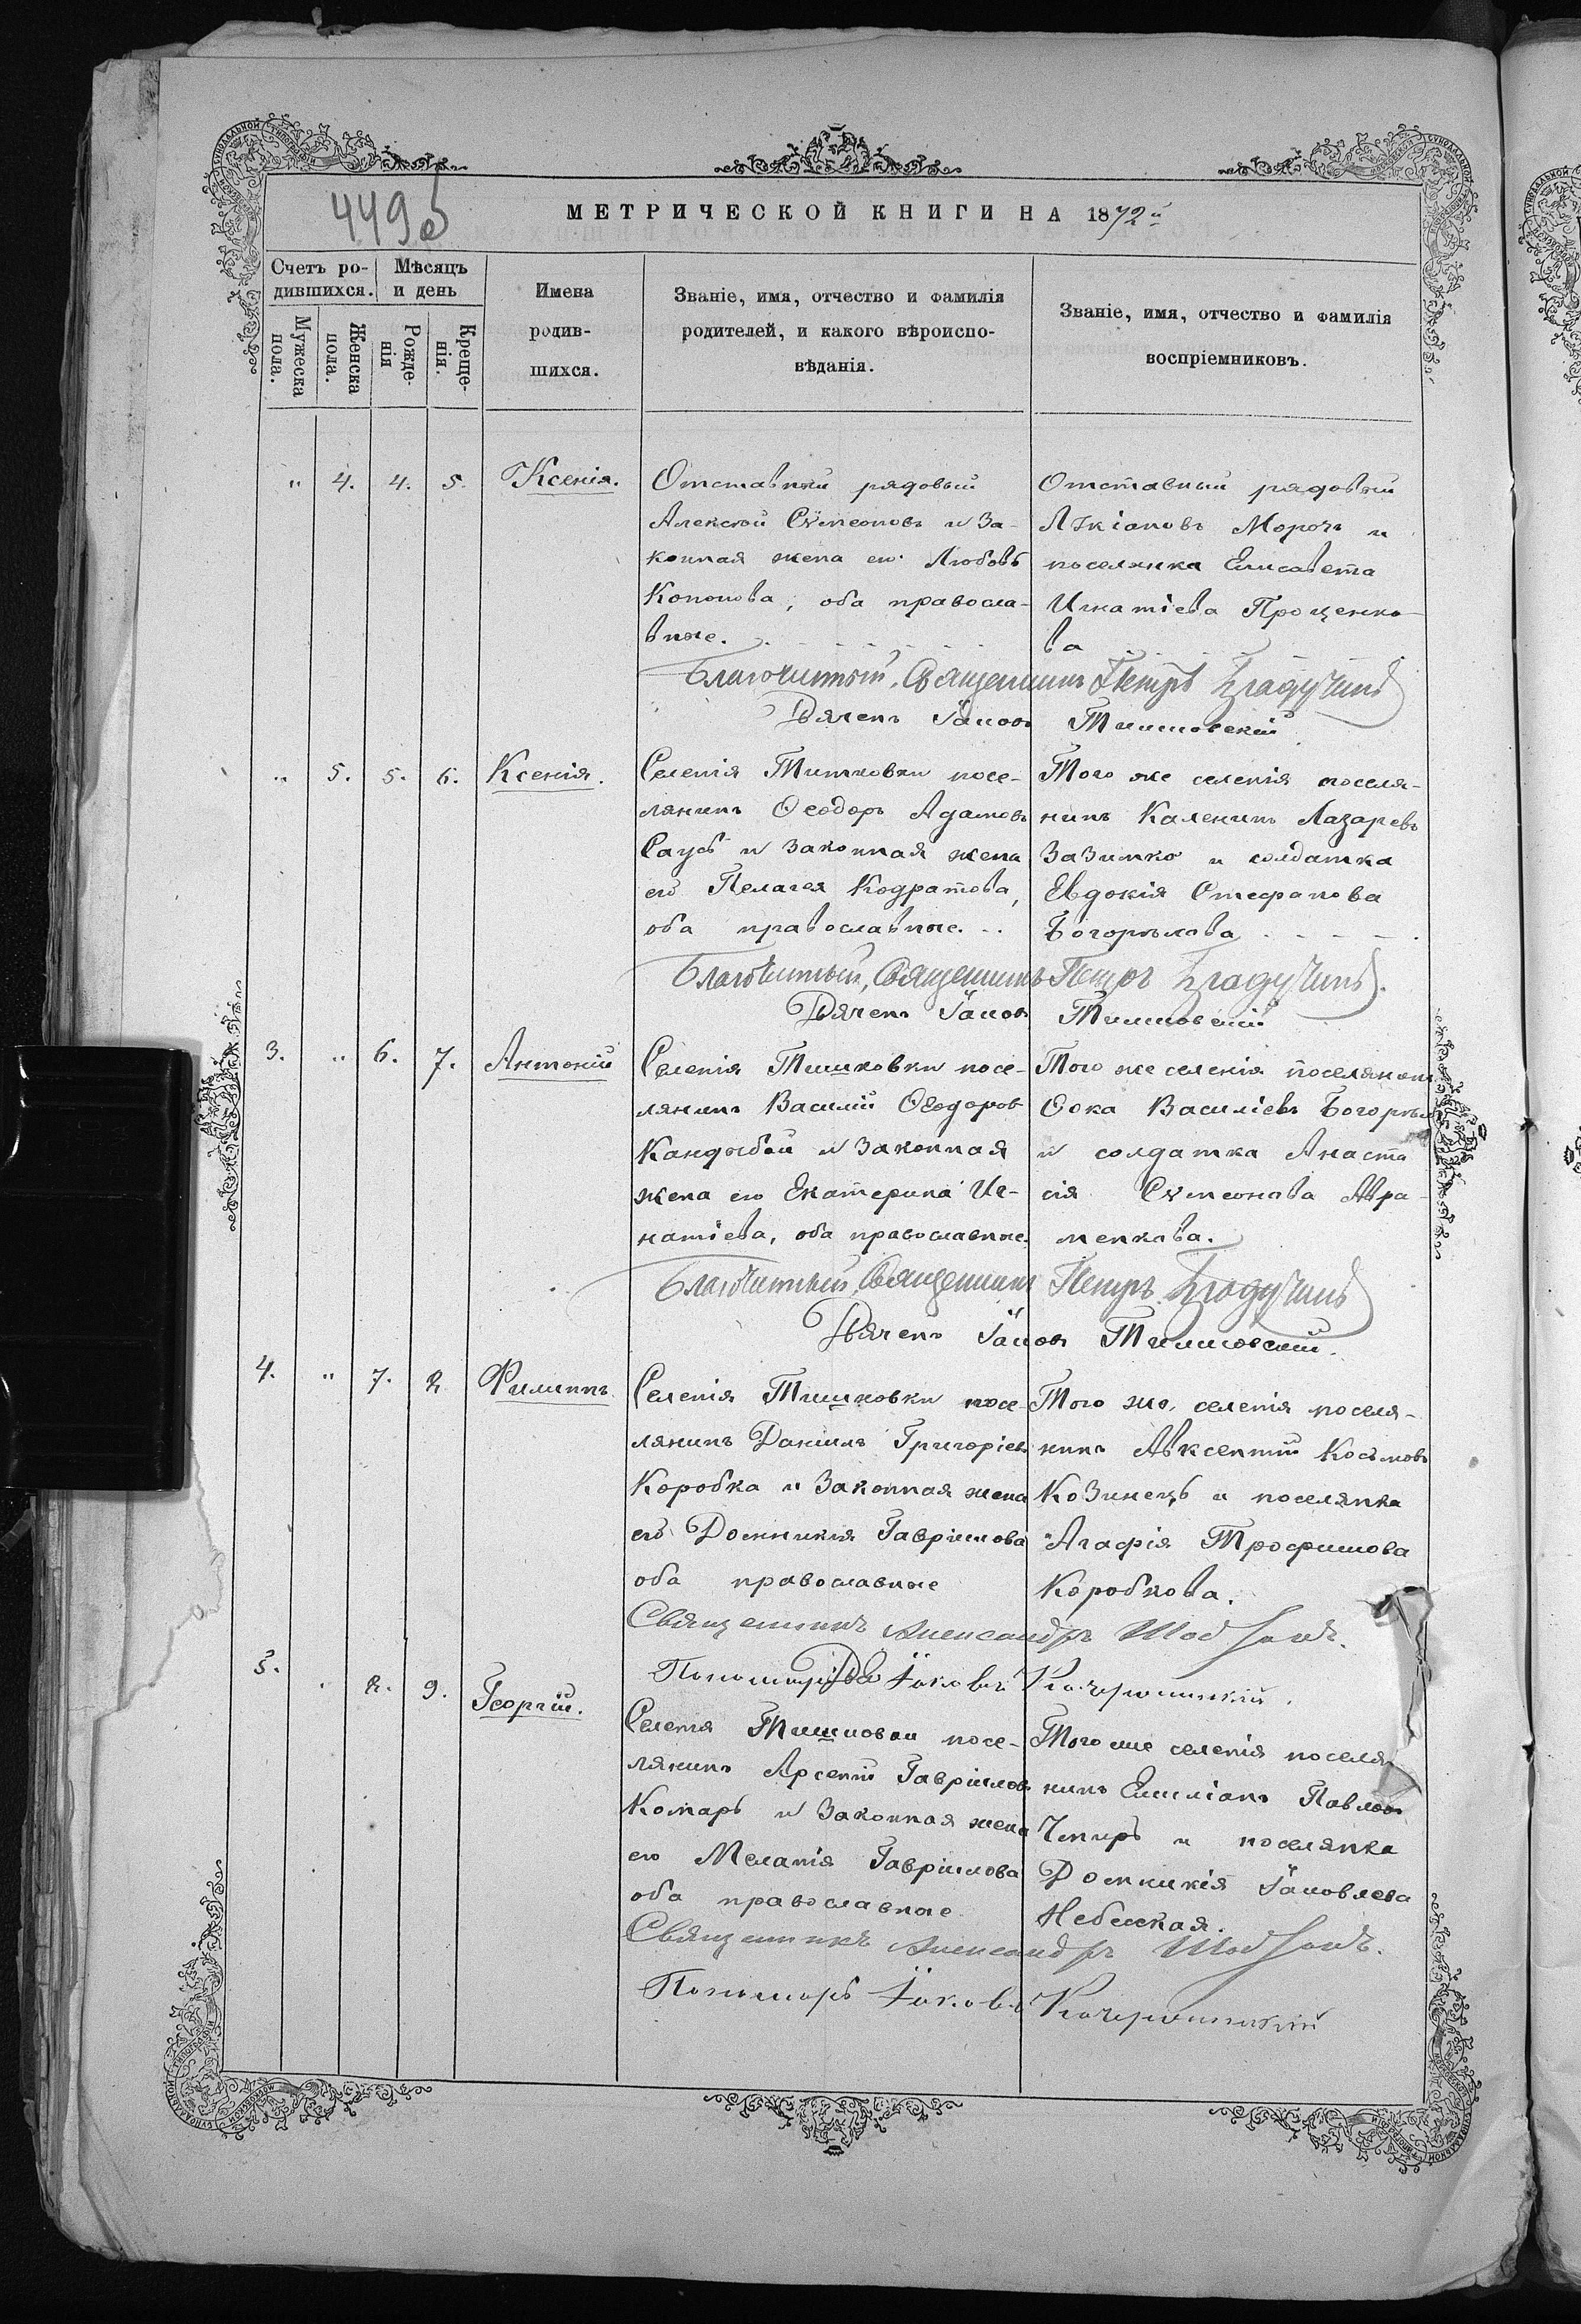 449 об
МЕТРИЧЕСКОЙ КНИГИ НА 1872й
Счетъ ро-
дившихся.
Мѣсяцъ
и день
Мужеска
пола.
Женска
пола.
Рожде-
нія
Креще-
нія.
Имена
родив-
шихся.
Званіе, имя, отчество и фамилія
родителей, и какого вѣроиспо-
вѣданія.
Званіе, имя, отчество и фамилія
воспріемниковъ.
" 4. 4. 5. Ксенія.
Отставный рядовый
Алексѣй Сѵмеоновъ и за-
конная жена его Любовь
Кононова, оба правосла-
вные.
Отставный рядовый
Морозъ и
поселянка Елисавета
Игнатіева Проценко-
ва
Благочинный, Священникъ Петръ
Дячекъ Іаковъ
" 5. 5. 6. Ксенія.
Селенія Тишковки посе-
лянинъ Ѳеодоръ Адамовъ
Саусь и законная жена
его Пелагея Кодратова,
оба православные.
Того же селенія поселя-
нинъ Каленикъ Лазаревъ
Зазимко и солдатка
Евдокія Стефанова
Богорѣлова
Благочинный, Священникъ Петръ
Дячекъ Іаковъ
3. " 6. 7. Антоній
Селенія Тишковки посе-
лянинъ Василій Ѳеодоров
Кандыбей и законная
жена его Екатерина Иг-
натіева, оба православные.
Того же селенія поселянинъ
Ѳока Василіевъ
и солдатка Анаста
сія Сѵмеонова Авра-
менкова.
Благочинный, Священникъ Петръ
Дячекъ Іаковъ
4. " 7. 8 Филиппъ
Селенія Тишковки посе-
лянинъ Даніилъ Григоріевъ
Коробка и законная жена
его Домникія Гавріилова
оба православные
Того же селенія поселя-
нинъ Авксентій Косьмовъ
Козинецъ и поселянка
Агафія Трофимова
Коробкова.
Священникъ Александръ
Пономарь Іаковъ
5. 8. 9. Георгій.
Селенія Тишковки посе-
лянинъ Арсеній Гавріиловъ
Комаръ и законная жена
его Меланія Гавріилова
оба православные
Того же селенія поселя-
нинъ Емиліанъ Павловъ
Чмиръ и поселянка
Домникія Іаковлева
Небеская.
Священникъ Александръ
Пономарь Іаковъ